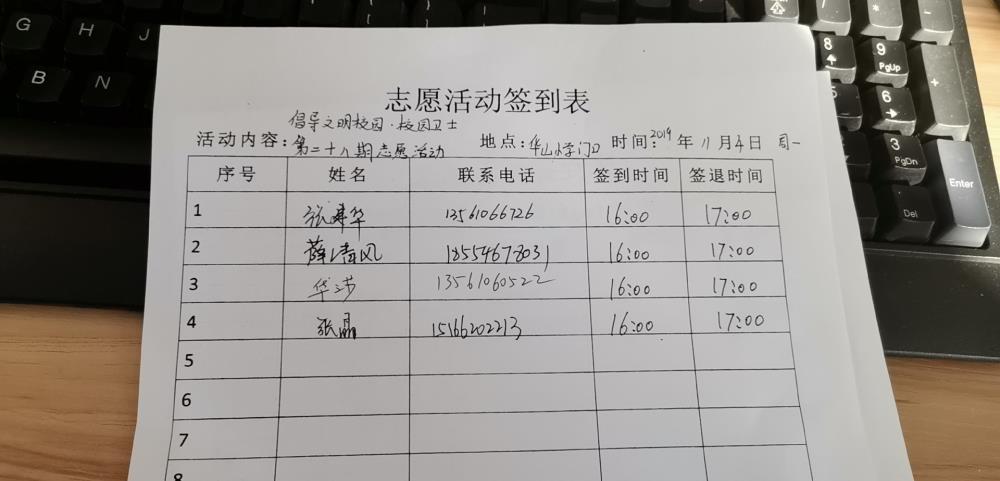 志愿活动签到表
倡导文明校园·校园卫士
活动内容：第二十八期志愿活动 地点：华山小学门口 时间：2019年11月4日 周一
序号 姓名 联系电话 签到时间 签退时间
1 张建华 13561066726 16:00 17:00
2 薛清风 18554678031 16:00 17:00
3 华莎 13561060522 16:00 17:00
4 张晶 15166202213 16:00 17:00
5
6
7
8
G H J
B N
8
9 PgUp
5
6
3 PgDn
Enter
Del
/ * -
+